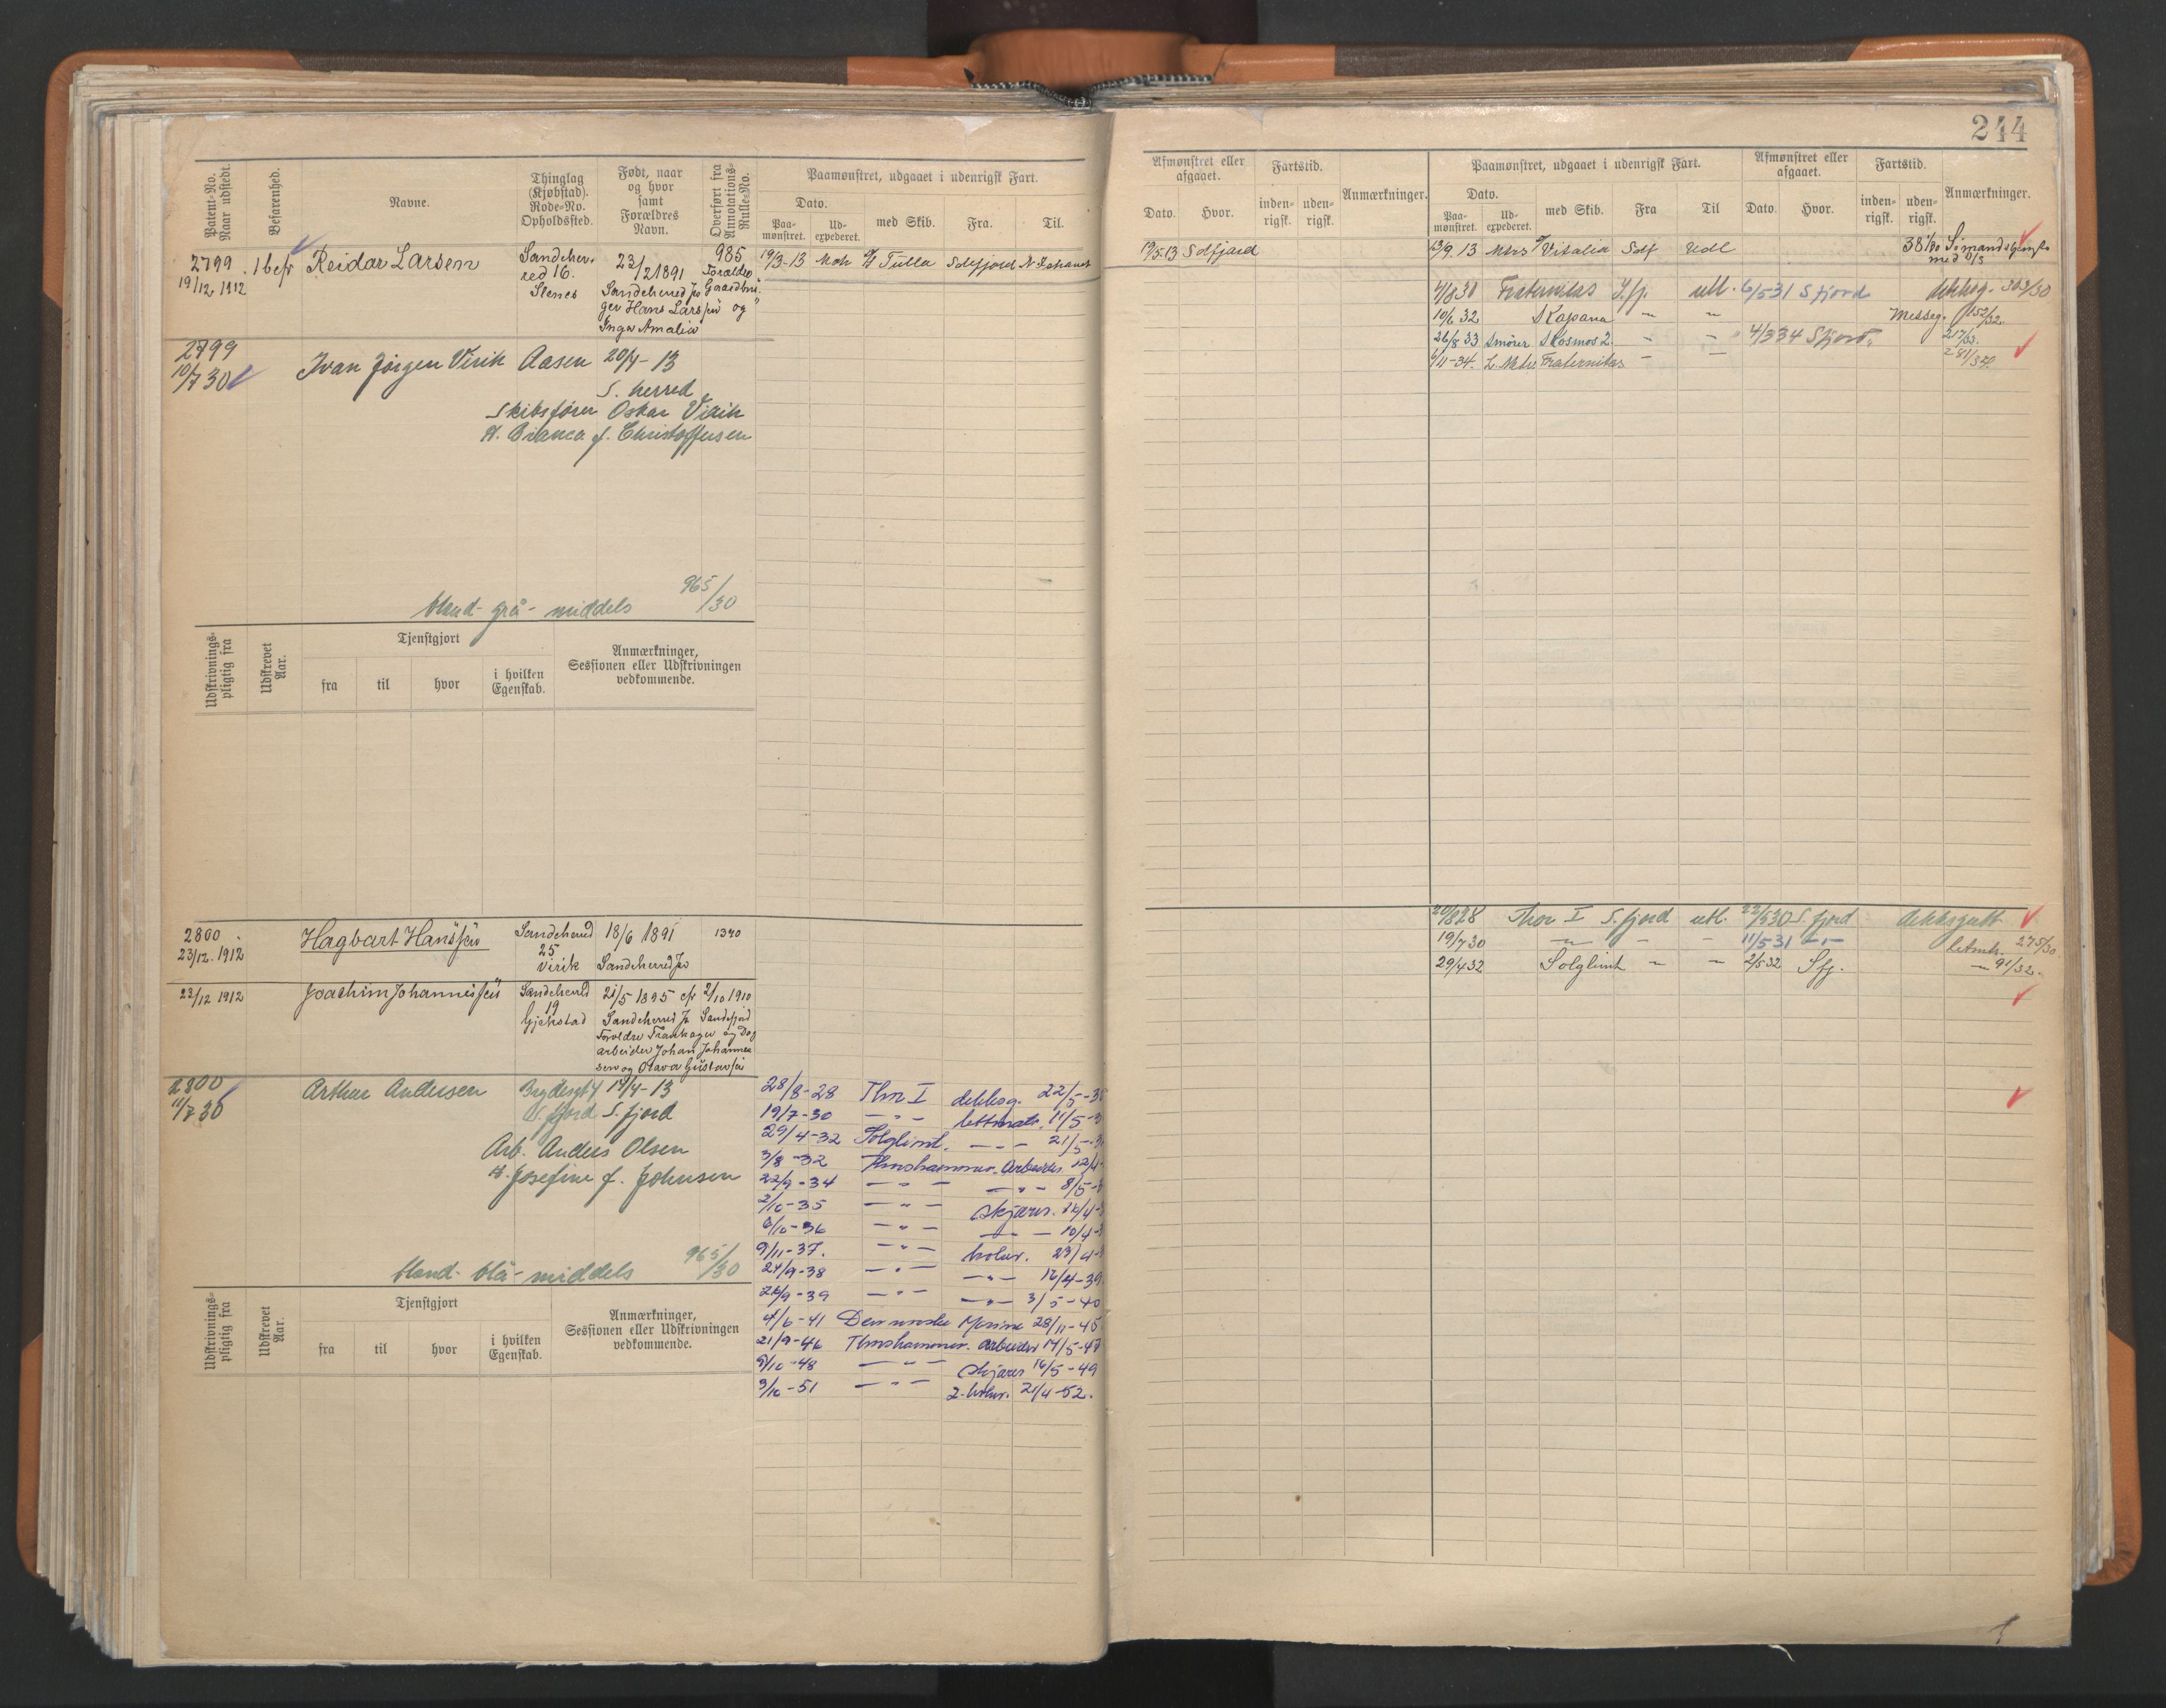 244
Patent-No. Naar udstedt.
Befarenhed.
Navne.
Thinglag (Kjøbstad). Rode-No. Opholdssted.
Født, naar og hvor samt Forældres Navn.
Overført fra Annotations-Rulle-No.
Paamønstret, udgaaet i udenrigsk Fart.
Dato.
Paa-mønstret.
Ud-expederet.
med Skib.
Fra.
Til.
Afmønstret eller afgaaet.
Dato.
Hvor.
Fartstid.
inden-rigsk.
uden-rigsk.
Anmærkninger.
Paamønstret, udgaaet i udenrigsk Fart.
Dato.
Paa-mønstret.
Ud-expederet.
med Skib.
Fra
Til
Afmønstret eller afgaaet.
Dato.
Hvor.
Fartstid.
inden-rigsk.
uden-rigsk.
Anmærkninger.
2799
19/12 1912
1 bef
Reidar Larsen
Sandeher-
red 16.
Stenes
23/2 1891
Sandeherred
985
Forældre
Gaardbru-
ger Hans Larsen og
Inga Amalia
19/3-13 Tulla Sdefjord
19/5 13 Sdfjord
13/9. 13 Mtrs Vitalia Sdf Udl
2799
10/7 30
Ivan Jørgen Virik Aasen 20/4-13
S. herred
Skibsfører Oskar Virik
H. Bianca f. Christoffersen
965/30
blond- grå- middels
4/8 30 Fraternitas S.fj. utl. 6/5 31 S fjord dekksg. 303/30
10/6 32 Kapana Messeg. 152/32.
26/8 33 Smører Kosmos 2. 4/3 34 Sfjord. 217/33.
6/11-34. L. Matr. Fraternitas 281/34.
Udskrivnings-pligtig fra
Udskrevet Aar.
Tjenstgjort
fra
til
hvor
i hvilken Egenskab.
Anmærkninger, Sessionen eller Udskrivningen vedkommende.
2800
23/12. 1912
Hagbart Hansen
Sandeherred
25
Virik
18/6 1891
Sandeherred
1340
23/12 1912
Joachim Johannessen
Sandeherred
19
Gjekstad
21/5 1895 2/10 1910
Sandeherred Sandefjord
Forældre Trankoger og Dag
arbeider Johan Johannes
sen og Olava Gustavsen
20/8 28 Thor I S. fjord utl. 22/5 30 S. fjord dekksgutt
19/7 30 11/5 31 letmtr. 275/30.
29/4 32 Solglimt 2/5 32 Sfj. 91/32.
2800
11/7 30
Arthur Andersen
14/4-13
S. fjord S. fjord
Arb. Anders Olsen
H. Josefine f. Johnsen
965/30
blond- blå- middels
28/8-28 Thor I dekksg. 22/5-30
19/7-30 — " — lettmatr. 11/5-3
29/4-32 Solglimt. — " — 21/5-3
3/8-32 Thorshammer. Arbeider 12/4-
22/9-34 — " — — " — 8/5-3
2/10-35 — " — Skjærer. 16/4-3
6/10-36 — " — — " — 10/4-3
9/11-37. — " — koker. 23/4-3
24/9-38 — " — — " — 16/4-39
26/9-39 — " — — " — 3/5-40
4/6-41 Den norske Marine 28/11-45
21/9-46 Thorshammer. Arbeider 14/5-47
9/10-48 — " — Skjærer 16/5-49
3/10-51 — " — 2-koker. 21/4-52.
Udskrivnings-pligtig fra
Udskrevet Aar.
Tjenstgjort
fra
til
hvor
i hvilken Egenskab.
Anmærkninger, Sessionen eller Udskrivningen vedkommende.